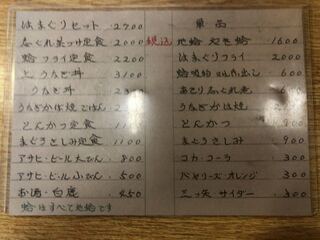 はまぐりセット 2700
しぐれ茶づけ定食 2000
蛤フライ定食 2200
上うなぎ丼 3100
うなぎ丼
うなぎかば焼ごはん
とんかつ定食
まぐろさしみ定食
アサヒ・ビール大びん 800
アサヒ・ビール小びん 500
お酒・白鹿 450
蛤はすべて地蛤です
税込
単品
地蛤 焚き蛤 1600
はまぐりフライ 2000
蛤吸物 600
あさりしぐれ煮
うなぎかば焼
とんかつ 900
まぐろさしみ 900
コカ・コーラ 300
バヤリース オレンジ 300
三ツ矢 サイダー 300